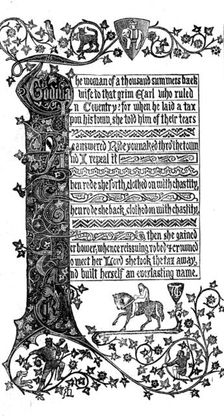 Godiva
The woman of a thousand summers back
wife to that grim Earl who ruled
In Coventry: for when he laid a tax
upon his town, she told him of their tears
He answered Ride you naked thro the town
And I repeal it
Then rode she forth, clothed on with chastity,
Then rode she back, clothed on with chastity,
& then she gained
Her bower; whence reissuing, robed & crowned
To meet her Lord she took the tax away,
And built herself an everlasting name.